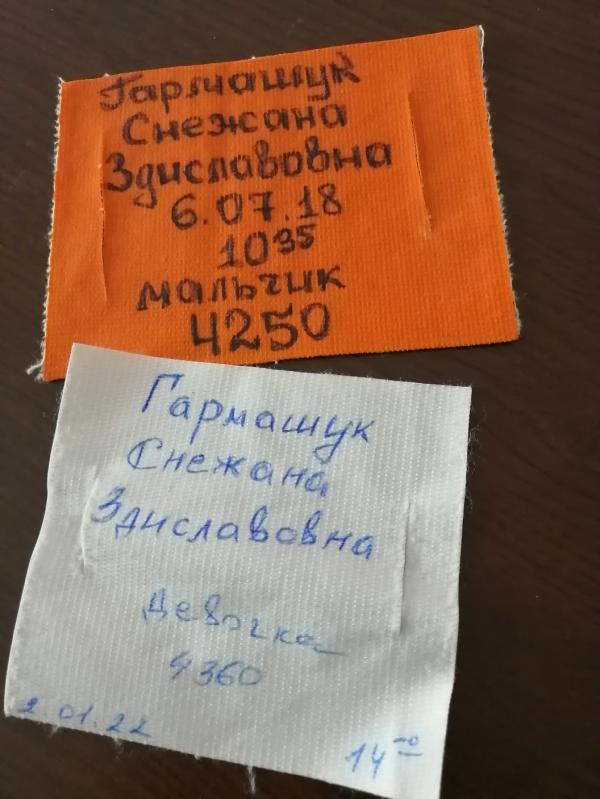 Гармашук
Снежана
Здиславовна
6.07.18
10³⁵
мальчик
4250
Гармашук
Снежана
Здиславовна
Девочка
4360
2.01.22
14⁻⁰